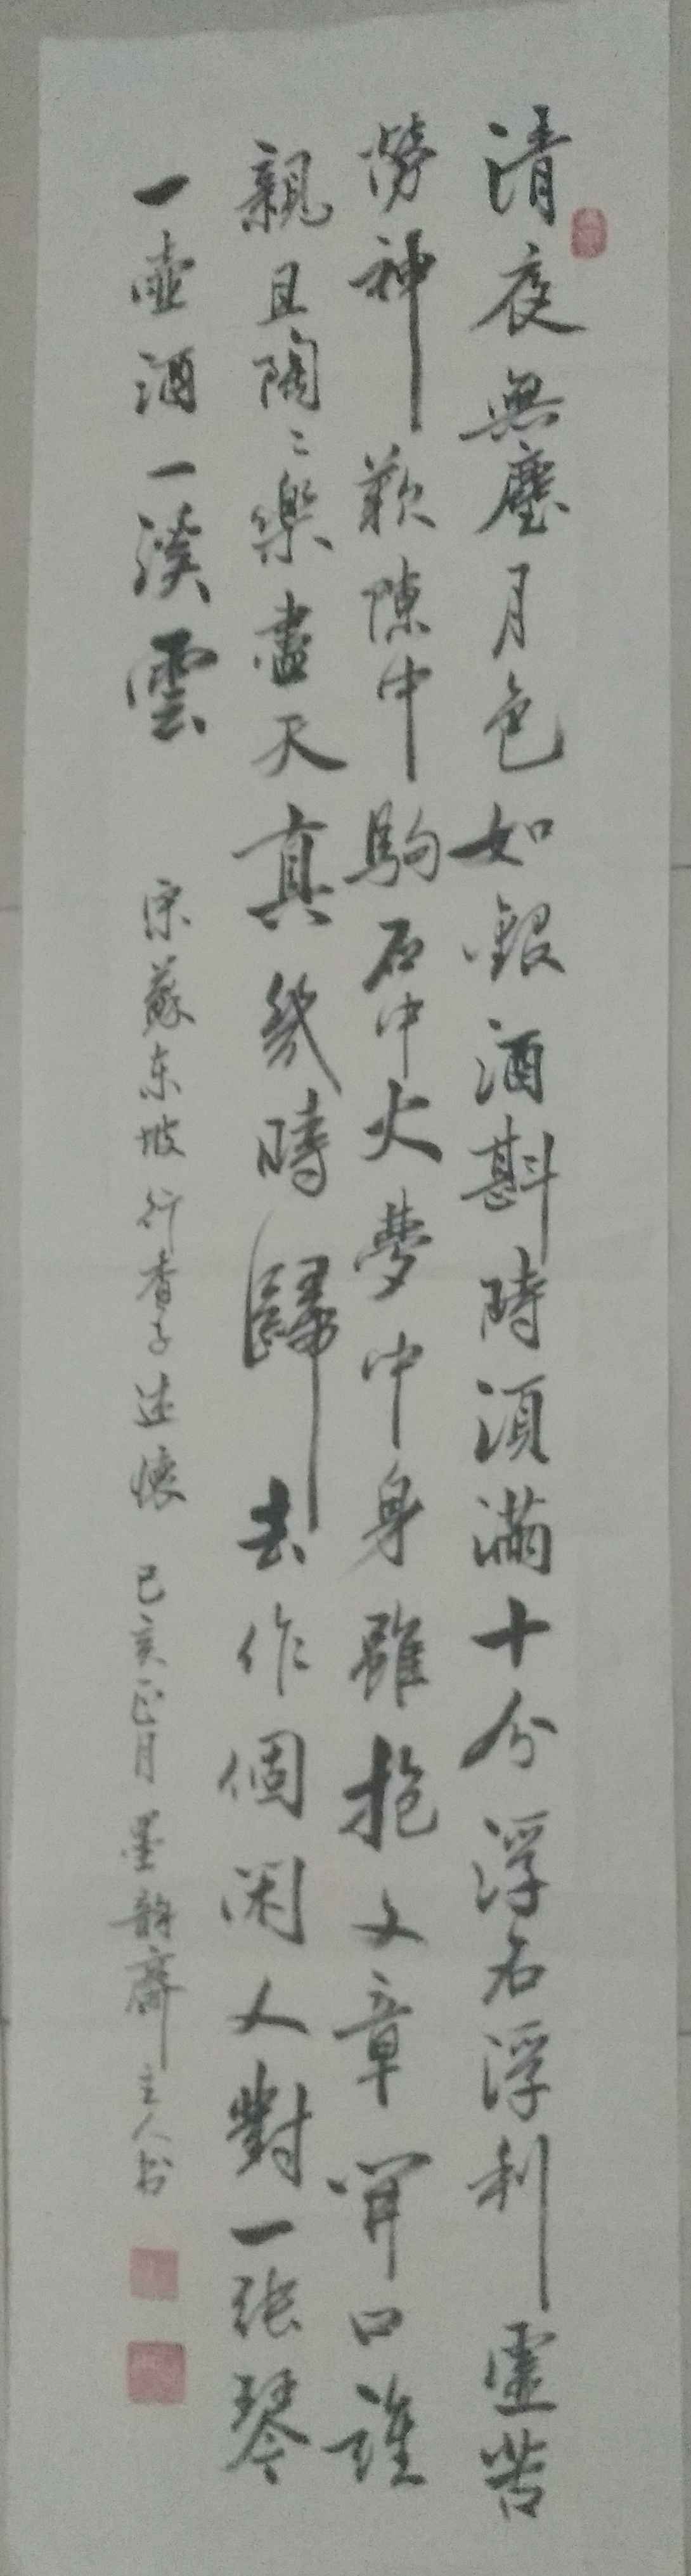 清夜無塵月色如銀酒斟時須滿十分浮名浮利虛苦
勞神歎隙中駒石中火夢中身雖抱文章開口誰
親且陶〻樂盡天真幾時歸去作個閑人對一張琴
一壺酒一溪雲
宋蘇东坡行香子述懷 己亥正月墨韵齋主人书